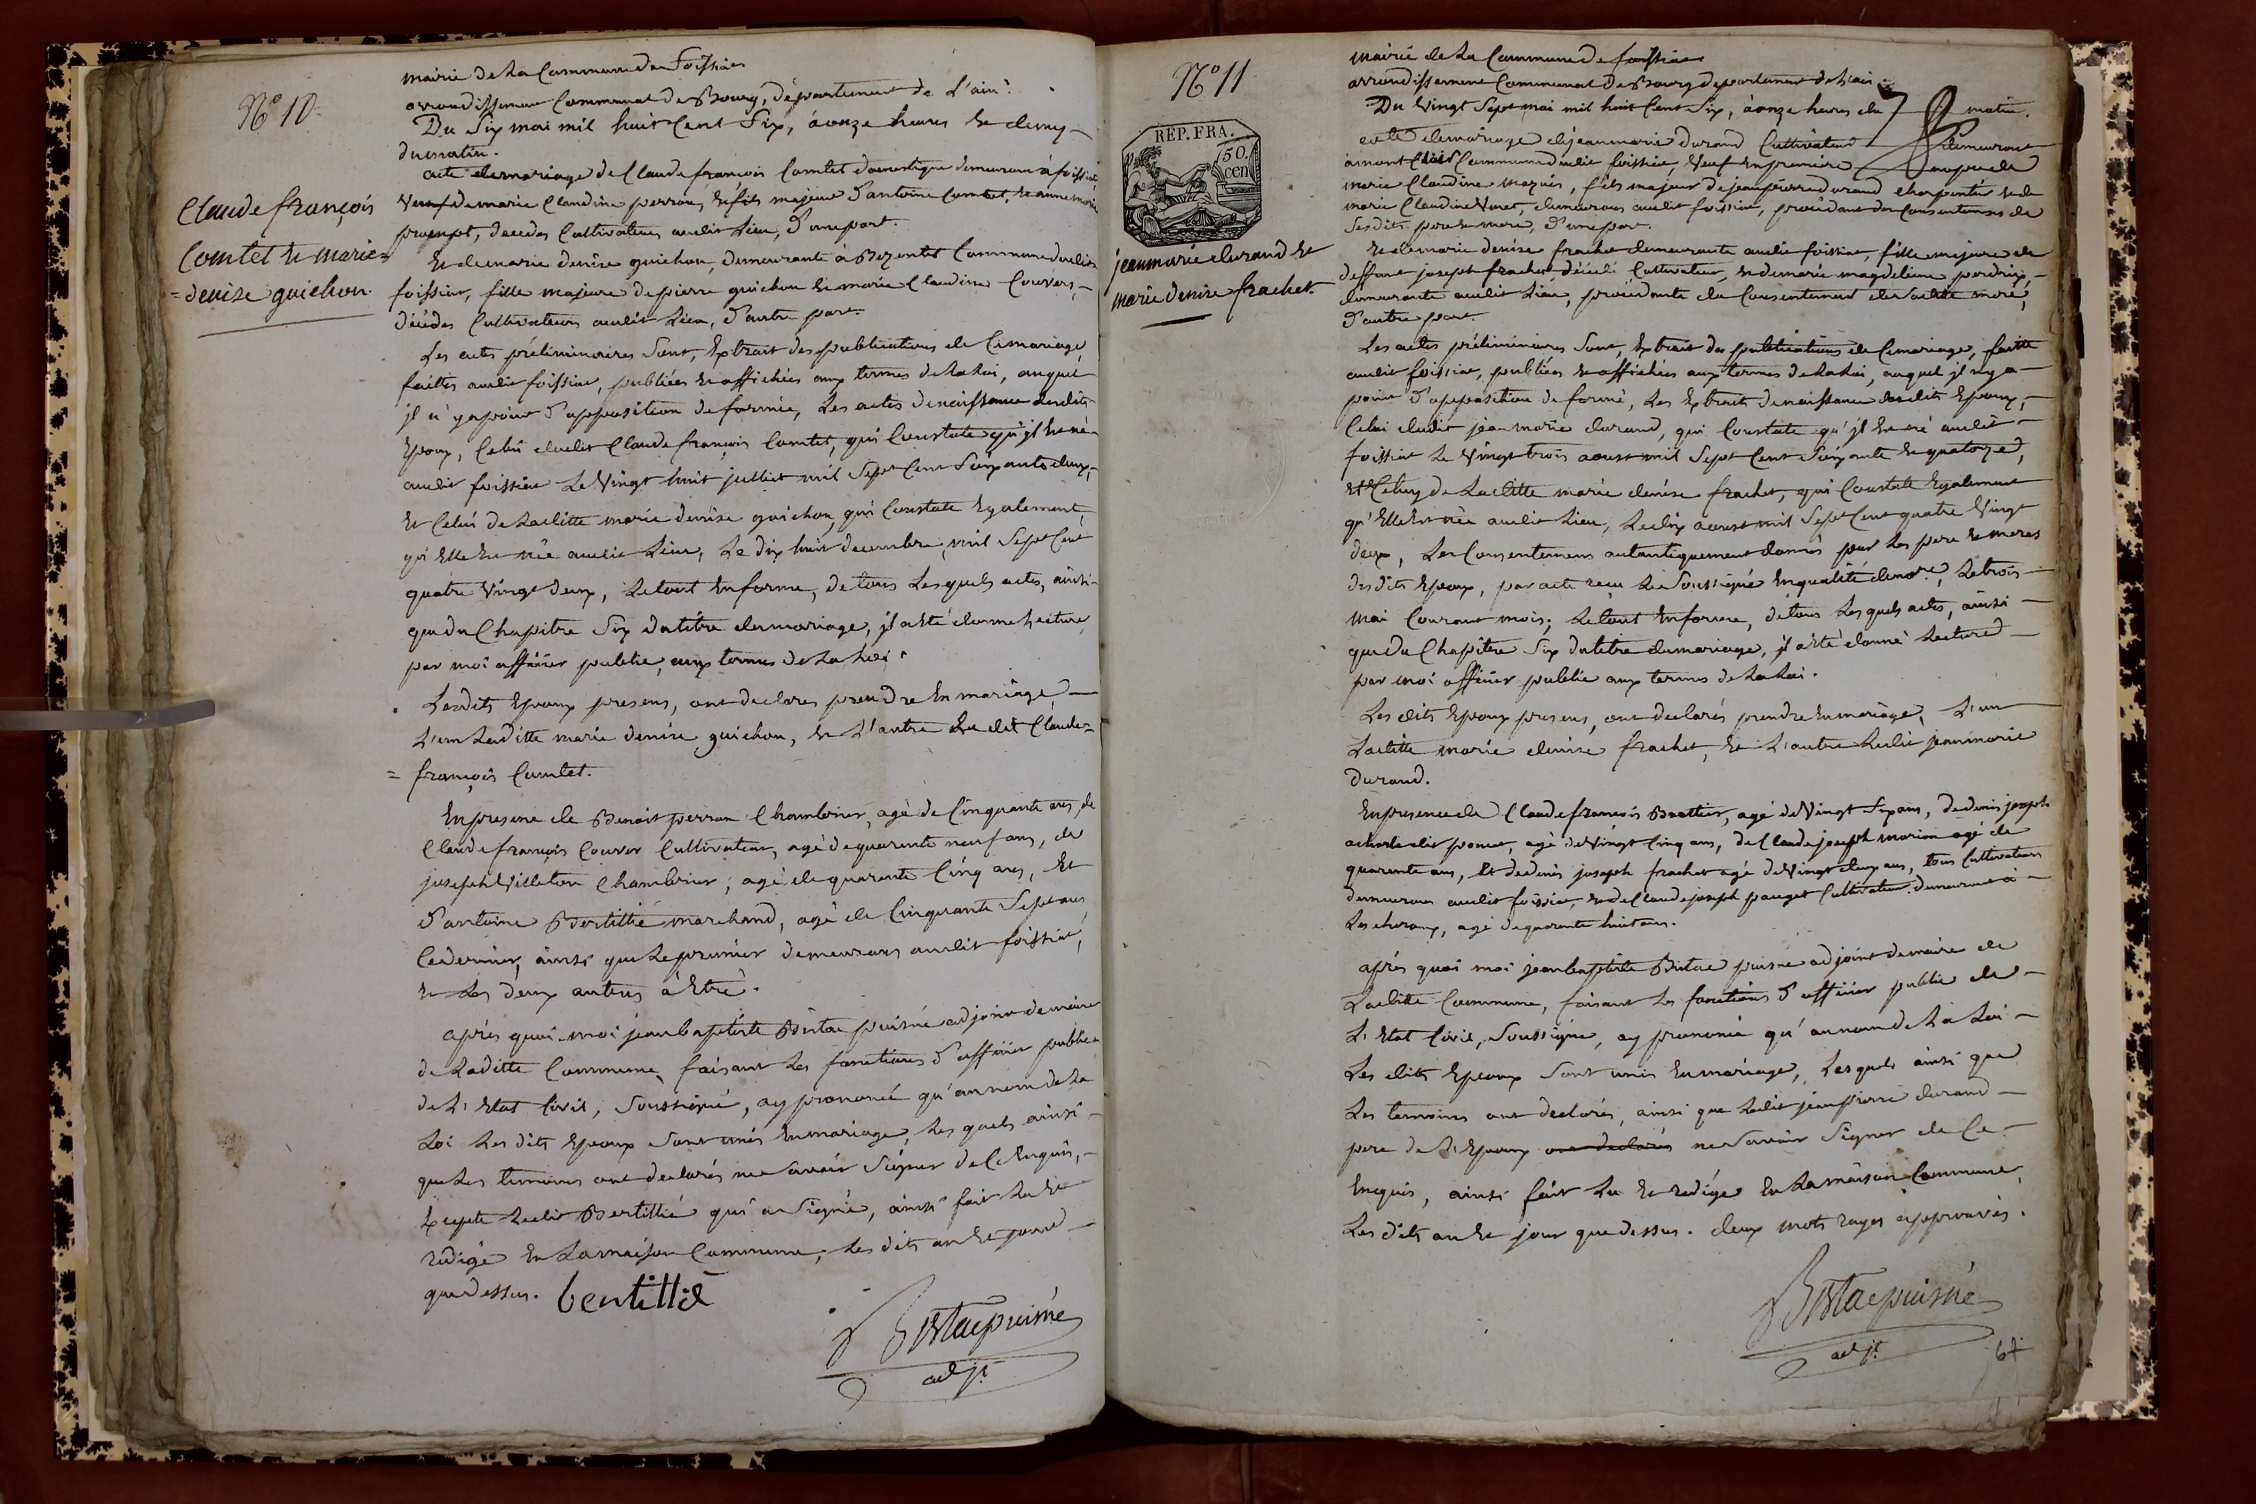 N.º 10.
Claude françois
Comtet & marie
= denise guichon.
mairie de la Commune de Foissiat
arrondissement Communal de Bourg, département de L'ain.
Du Six mai mil huit Cent Six, à onze heures & demy
du matin.
acte de mariage de Claude françois Comtet domestique demeurant à foissiat,
Veuf de marie Claudine perron, & fils majeur d'antoine Comtet, & anne marie
decedes Cultivateurs audit Lieu, d'une part.
Et de marie denise guichon, demeurante à Commune dudit
foissiat, fille majeure de pierre guichon & marie Claudine Couvert,
décédes Cultivateurs audit Lieu, d'autre part.
Les actes préliminaires Sont, Extrait des publications de Ce mariage,
faittes audit foissiat, publiées & affichées aux termes de La Loi, auquel
jl n'y a point d'opposition de formée, Les actes de naissance desdits
Epoux, Celui dudit Claude françois Comtet, qui Constate qu'jl Est né
audit foissiat Le Vingt huit juillet mil Sept Cent Soixante deux,
Et Celui de Laditte marie denise guichon, qui Constate Egalement
qu'Elle Est née audit Lieu, Le dix huit decembre mil Sept Cent
quatre Vingt deux, Le tout En forme, de tous Lesquels actes, ainsi
que du Chapitre Six du titre du mariage, jl a Eté donné Lecture,
par moi officier public, aux termes de La Loi.
Lesdits Epoux presens, ont declares prendre En mariage
L'un Laditte marie denise guichon, & L'autre Le dit Claude =
= françois Comtet.
En presence de Benoit perron Chambrier, agé de Cinquante ans, de
Claude françois Couvert Cultivateur, agé de quarente neuf ans, de
joseph Villeton Chambrier, agé de quarente Cinq ans, Et
d'antoine Bertillié marchand, agé de Cinquante Sept ans
Ce dernier, ainsi que Le premier demeurans audit foissiat,
& Les deux autres à Etré.
après quoi moi jean baptiste Bistac puisné adjoint de maire
de Laditte Commune, faisant Les fonctions d'officier public
de L'Etat Civil, Soussigné, ay prononcé qu'au nom de La
Loi Les dits Epoux Sont unis En mariage, Lesquels ainsi
que Les temoins ont declarés ne Savoir Signer de Ce Enquis,
Excepté Ledit Bertillié qui a Signé, ainsi fait Lu &
redigé En La maison Commune, Les dits an & jour
que dessus. bertillié
Bistac puisné
adjt.
N.º 11
REP. FRA.
50.
cen
jean marie durand &
marie denise frachet.
mairie de La Commune de foissiat
arrondissement Communal De Bourg departement de L'ain
Du Vingt Sept mai mil huit Cent Six, à onze heures du matin.
acte de mariage de jean marie durand Cultivateur demeurant
à mont Commune dudit foissiat, Veuf En premiere de
marie Claudine, fils majeur de jean pierre durand charpentier & de
marie Claudine Varet, demeurans audit foissiat, procédant du Consentement de
Sesdits pere & mere, d'une part.
Et de marie denise frachet demeurante audit foissiat, fille majeure de
deffunt joseph frachet décédé Cultivateur, & de marie magdeleine perdrix,
demeurante audit Lieu, procédante du Consentement de Saditte mere,
d'autre part.
Les actes préliminaires Sont, Extrait des publications de Ce mariage, faitte
audit foissiat, publiées & affichées aux termes de La Loi, auquel jl n'y a
point d'opposition de formé, Les Extraits de naissance desdits Epoux,
Celui dudit jean marie durand, qui Constate qu'jl Est né audit
foissiat Le Vingt trois aoust mil Sept Cent Soixante & quatorze,
Et Celuy de Laditte marie denise frachet, qui Constate Egalement
qu'Elle Est née audit Lieu, Le dix aoust mil Sept Cent quatre Vingt
deux, Les Consentemens autantiquement donnés par Les pere & meres
desdits Epoux, par acte recu Le Soussigné En qualité de no.re, Le trois
mai Courant mois; Le tout En forme, de tous Lesquels actes, ainsi
que du Chapitre Six du titre du mariage, jl a Eté donné Lecture
par moi officier public aux termes de La Loi.
Les dits Epoux presens, ont declarés prendre En mariage, L'un
Laditte marie denise frachet, & L'autre Ledit jean marie
durand.
En presence de Claude françois Brottier, agé de Vingt Six ans, de denis joseph
agé de Vingt Cinq ans, de Claude joseph morion agé de
quarente ans, Et de denis joseph frachet agé de Vingt deux ans, tous Cultivateurs
demeurans audit foissiat, & de Claude joseph pauget Cultivateur demeurant à
agé de quarente huit ans.
après quoi moi jean baptiste Bistac puisné adjoint de maire de
Laditte Commune, faisant Les fonctions d'officier public de
L'Etat Civil, Soussigné, ay prononcé qu'au nom de La Loi
Les dits Epoux Sont unis En mariage, Lesquels ainsi que
Les temoins ont declarés, ainsi que Ledit jean pierre durand
pere de L'Epoux ont declarés ne Savoir Signer de Ce
Enquis, ainsi fait Lu & redigé En La maison Commune,
Les dits an & jour que dessus. deux mots rayés approuvés.
Bistac puisné
adjt.